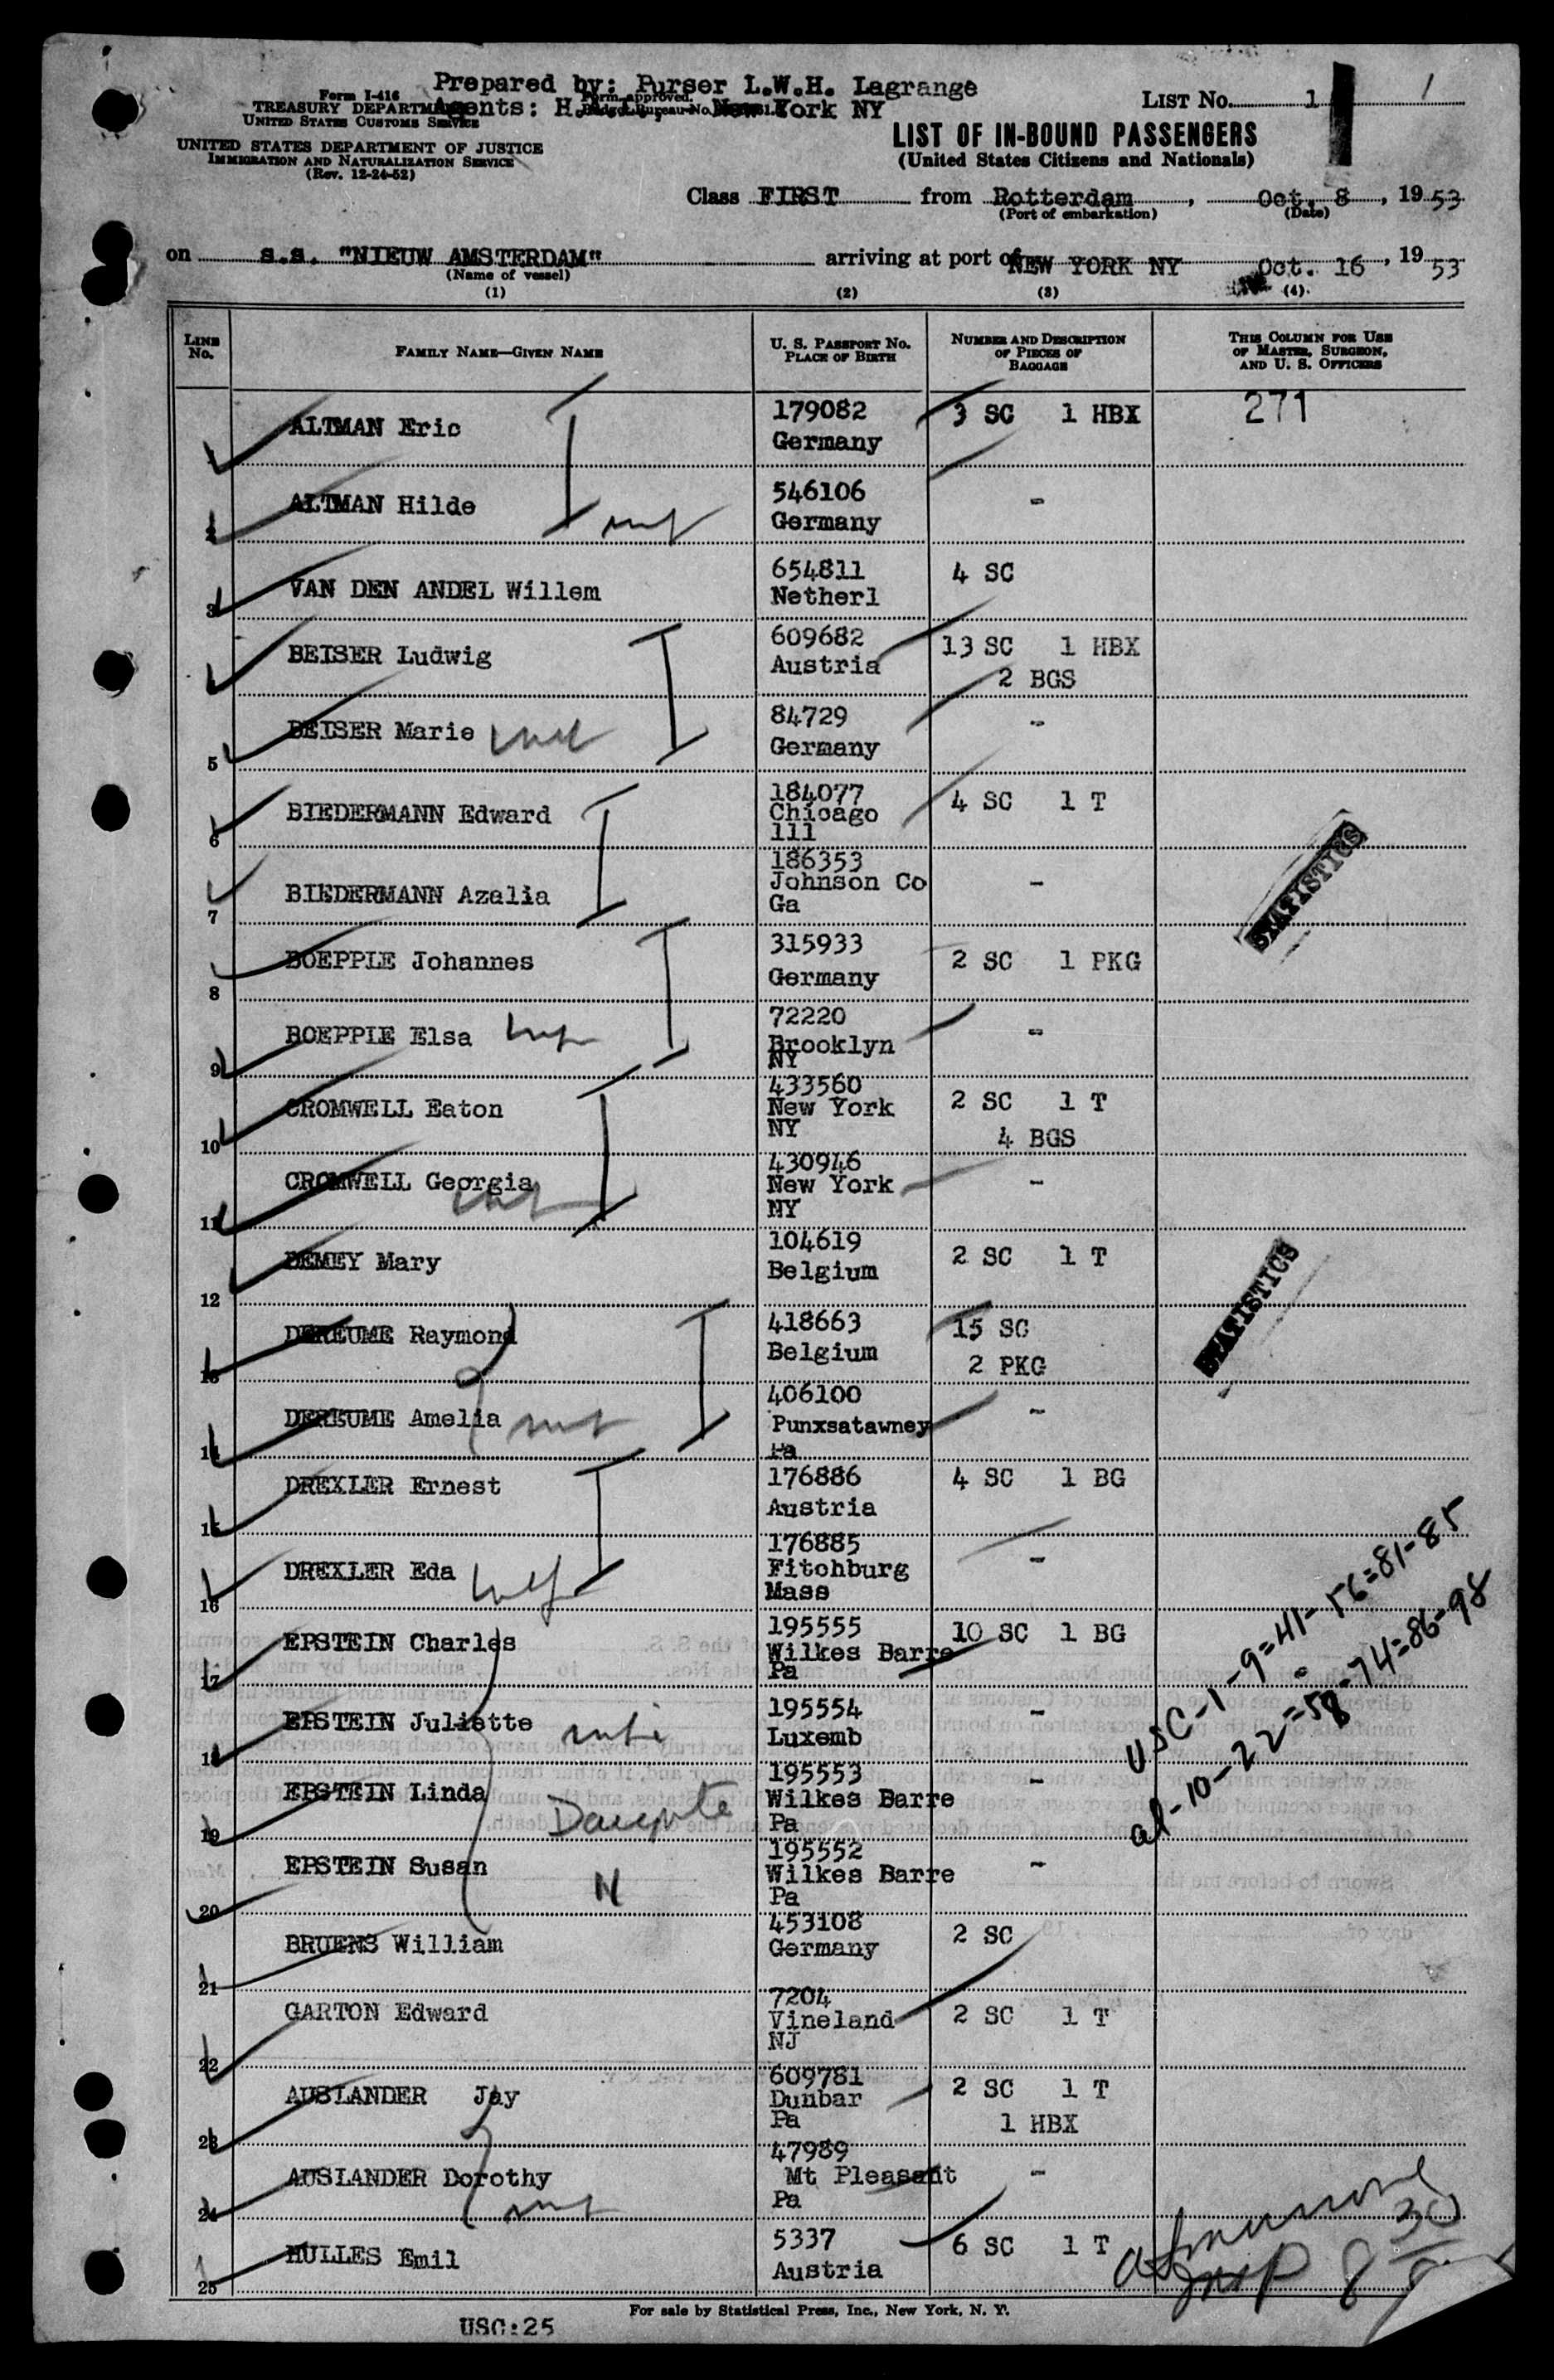 Prepared by: Purser L.W.H. Lagrange
Form I-416
TREASURY DEPARTMENT
UNITED STATES CUSTOMS SERVICE
Form approved.
Agents: H. New York NY
LIST No. 1 1
UNITED STATES DEPARTMENT OF JUSTICE
IMMIGRATION AND NATURALIZATION SERVICE
(Rev. 12-24-52)
LIST OF IN-BOUND PASSENGERS
(United States Citizens and Nationals)
Class FIRST from Rotterdam, Oct. 8, 1953
(Port of embarkation) (Date)
on s.s. "NIEUW AMSTERDAM" arriving at port of NEW YORK NY Oct. 16, 1953
(Name of vessel)
(1) (2) (3) (4)
LINE No. FAMILY NAME—GIVEN NAME U. S. PASSPORT No. PLACE OF BIRTH NUMBER AND DESCRIPTION OF PIECES OF BAGGAGE THIS COLUMN FOR USE OF MASTER, SURGEON, AND U. S. OFFICERS
1 ALTMAN Eric 179082 Germany 3 SC 1 HBX 271
2 ALTMAN Hilde 546106 Germany -
3 VAN DEN ANDEL Willem 654811 Netherl 4 SC
BEISER Ludwig 609682 Austria 13 SC 1 HBX 2 BGS
5 BEISER Marie 84729 Germany -
6 BIEDERMANN Edward 184077 Chicago 111 4 SC 1 T
7 BIEDERMANN Azalia 186353 Johnson Co Ga -
STATISTICS
8 BOEPPLE Johannes 315933 Germany 2 SC 1 PKG
9 BOEPPLE Elsa 72220 Brooklyn NY -
10 CROMWELL Eaton 433560 New York NY 2 SC 1 T 4 BGS
11 CROMWELL Georgia 430946 New York NY -
12 DEMEY Mary 104619 Belgium 2 SC 1 T
STATISTICS
13 DEREUME Raymond 418663 Belgium 15 SC 2 PKG
14 DEREUME Amelia 406100 Punxsatawney Pa -
15 DREXLER Ernest 176886 Austria 4 SC 1 BG
16 DREXLER Eda 176885 Fitchburg Mass -
17 EPSTEIN Charles 195555 Wilkes Barre Pa 10 SC 1 BG
18 EPSTEIN Juliette 195554 Luxemb -
19 EPSTEIN Linda 195553 Wilkes Barre Pa -
20 EPSTEIN Susan 195552 Wilkes Barre Pa -
USC-1-9=41-56=81-85
al-10-22=58-74=86-98
21 BRUENS William 453108 Germany 2 SC
22 GARTON Edward 7204 Vineland NJ 2 SC 1 T
23 AUSLANDER Jay 609781 Dunbar Pa 2 SC 1 T 1 HBX
24 AUSLANDER Dorothy 47989 Mt Pleasant Pa -
25 HULLES Emil 5337 Austria 6 SC 1 T
For sale by Statistical Press, Inc., New York, N. Y.
USC:25